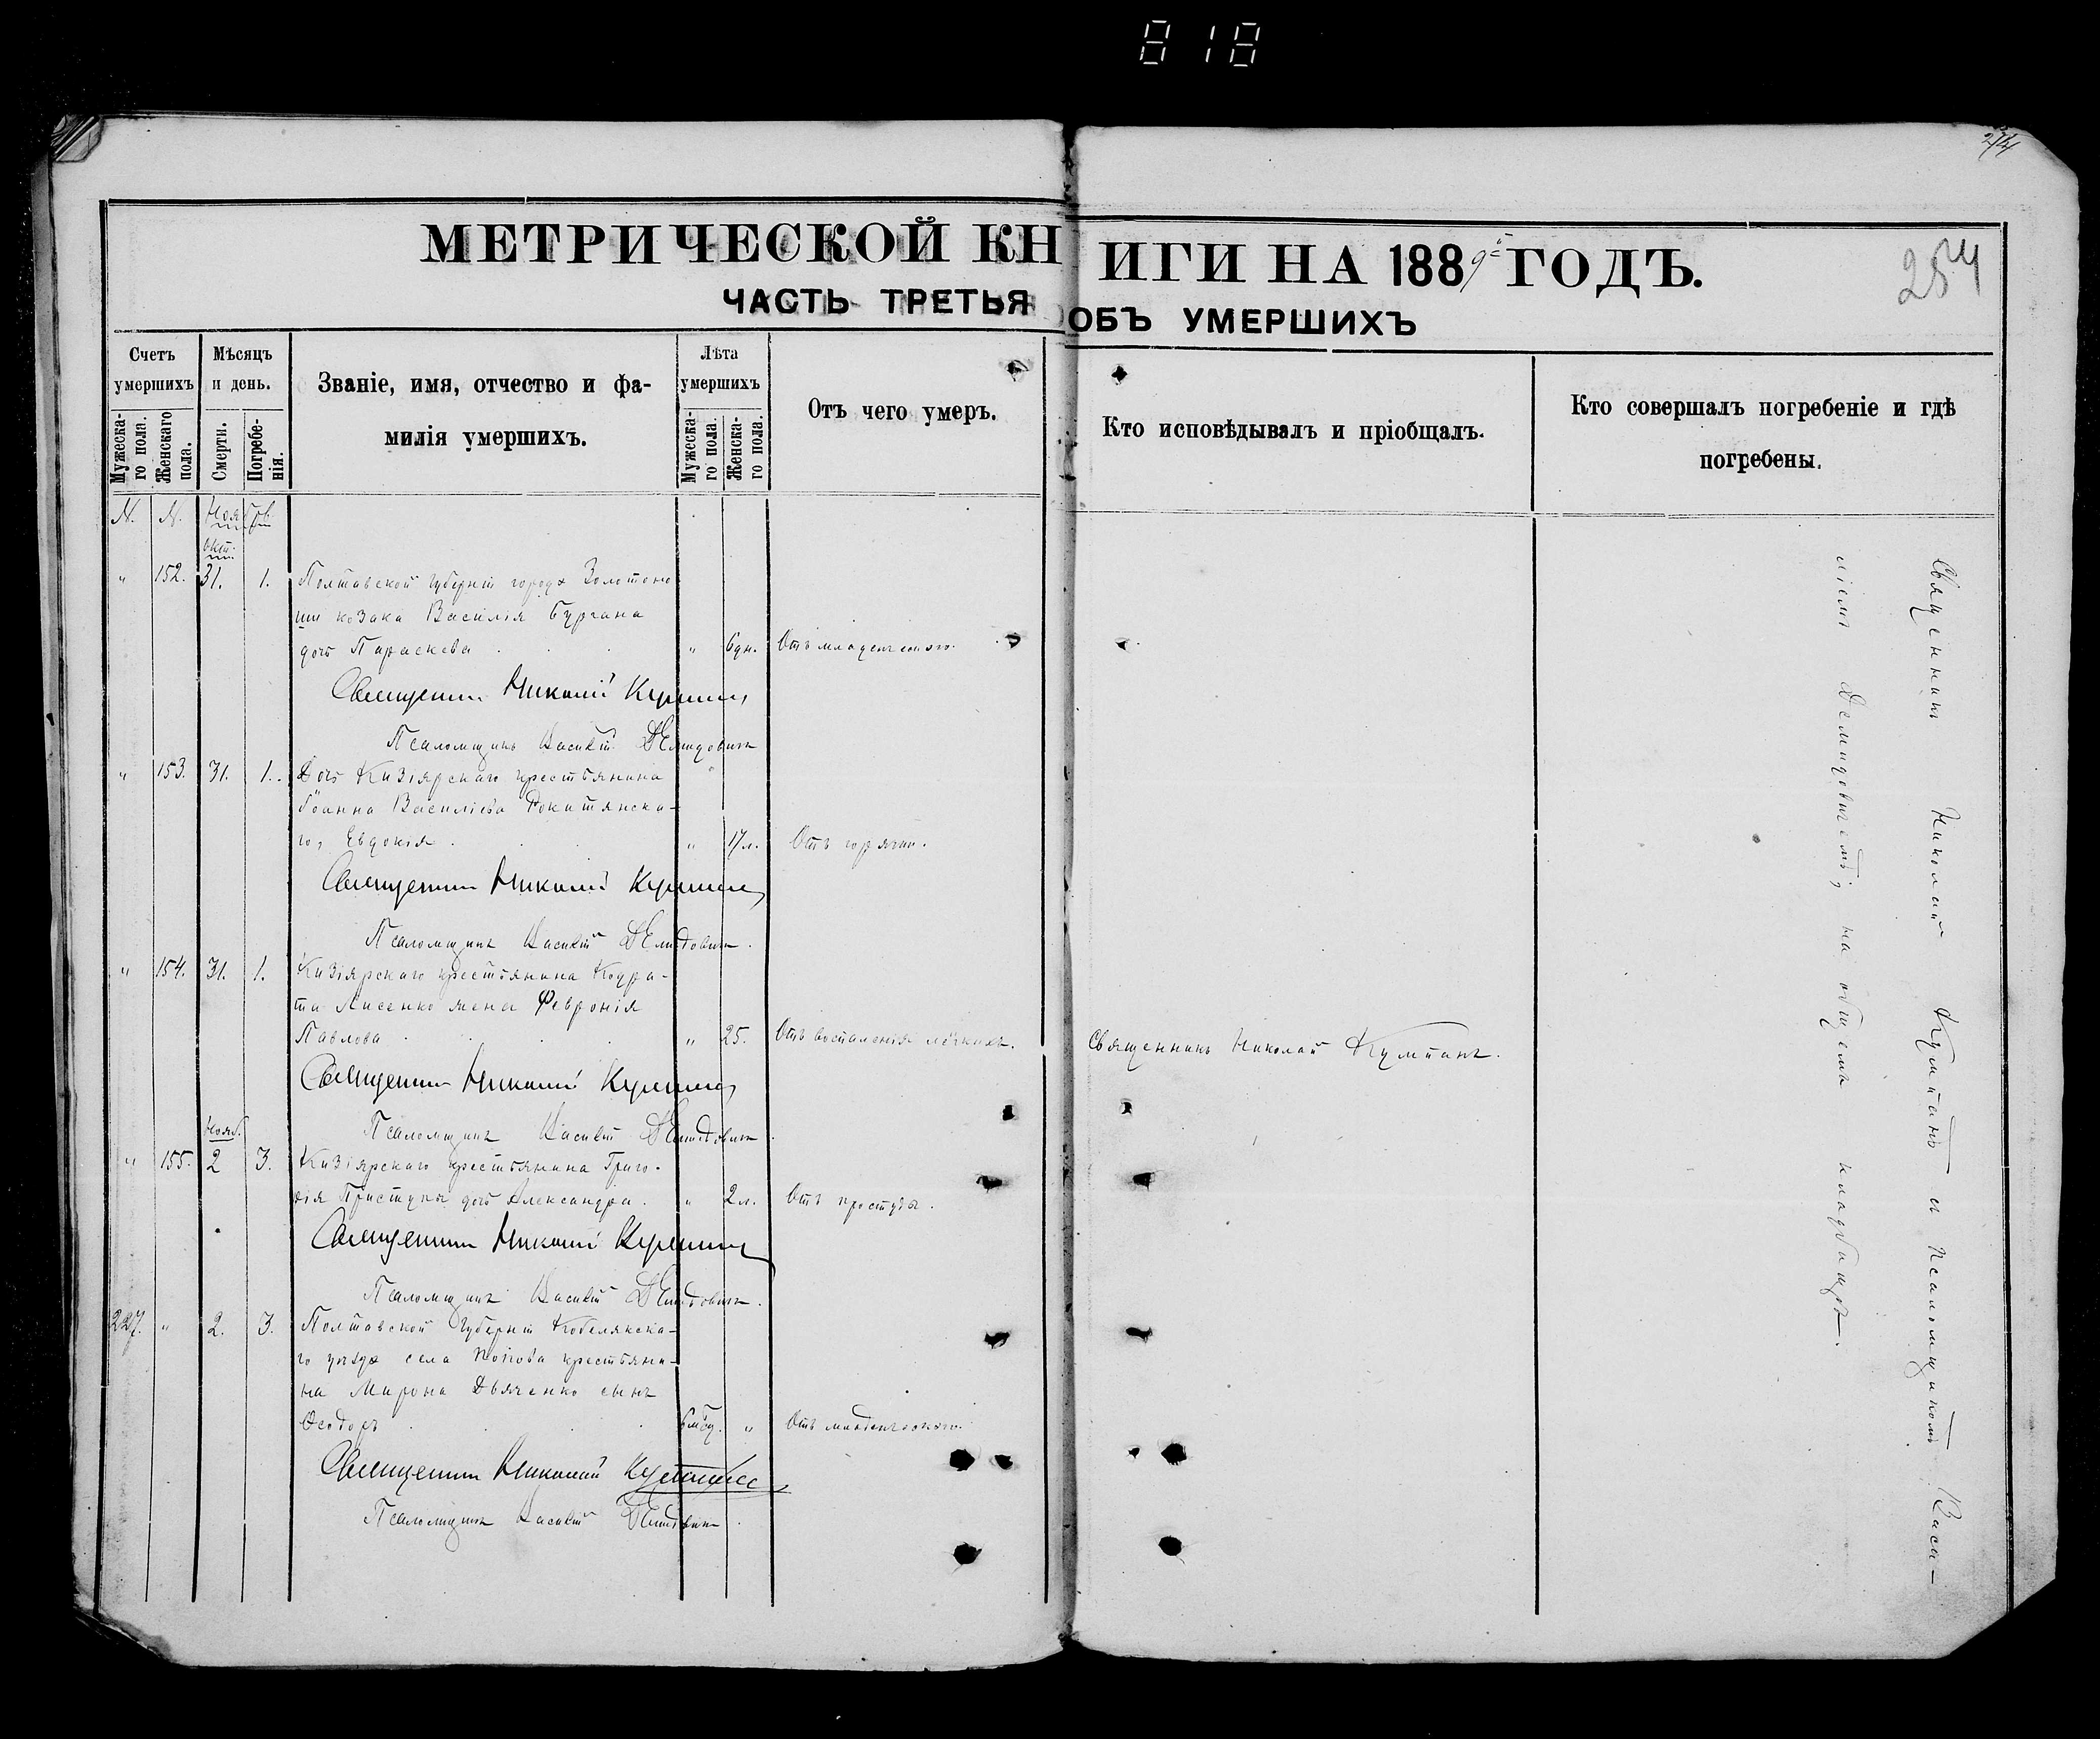 818
274
МЕТРИЧЕСКОЙ КНИГИ НА 1889й ГОДЪ.
254
ЧАСТЬ ТРЕТЬЯ ОБЪ УМЕРШИХЪ
Счетъ умершихъ
Мужескаго пола.
Женскаго пола.
Мѣсяцъ и день.
Смерти.
Погребенія.
Званіе, имя, отчество и фамилія умершихъ.
Лѣта умершихъ
Мужескаго пола.
Женскаго пола.
Отъ чего умеръ.
Кто исповѣдывалъ и пріобщалъ.
Кто совершалъ погребеніе и гдѣ погребены.
N. N. Ноябрь
окт.
" 152. 31. 1. Полтавской Губерніи города Золотоно-
ши козака Василія Бургана
дочь Параскева " 6дн. Отъ младенческаго.
Священникъ Николай Кумпанъ
Псаломщикъ Василій Демидовичъ
" 153. 31. 1. Дочь Кизіярскаго крестьянина
Іоанна Василіева Рокитянска-
го, Евдокія " 17л. Отъ горячки.
Священникъ Николай Кумпанъ
Псаломщикъ Василій Демидовичъ.
" 154. 31. 1. Кизіярскаго крестьянина Кодра-
та Лисенко жена Февронія
Павлова " 25. Отъ воспаленія лёгкихъ. Священникъ Николай Кумпанъ.
Священникъ Николай Кумпанъ
Псаломщикъ Василій Демидовичъ
Нояб.
" 155. 2 3. Кизіярскаго крестьянина Григо-
рія Приступы дочь Александра. " 2л. Отъ простуды.
Священникъ Николай Кумпанъ
Псаломщикъ Василій Демидовичъ.
227. " 2. 3. Полтавской Губерніи Кобелякска-
го уѣзда села крестьяни-
на Мирона Дьяченко сынъ
Ѳеодоръ " Отъ младенческаго.
Священникъ Николай Кумпанъ
Псаломщикъ Василій Демидовичъ.
Священникъ Николай Кумпанъ и Псаломщикомъ Васи-
ліемъ Демидовичемъ; на общемъ кладбищѣ.